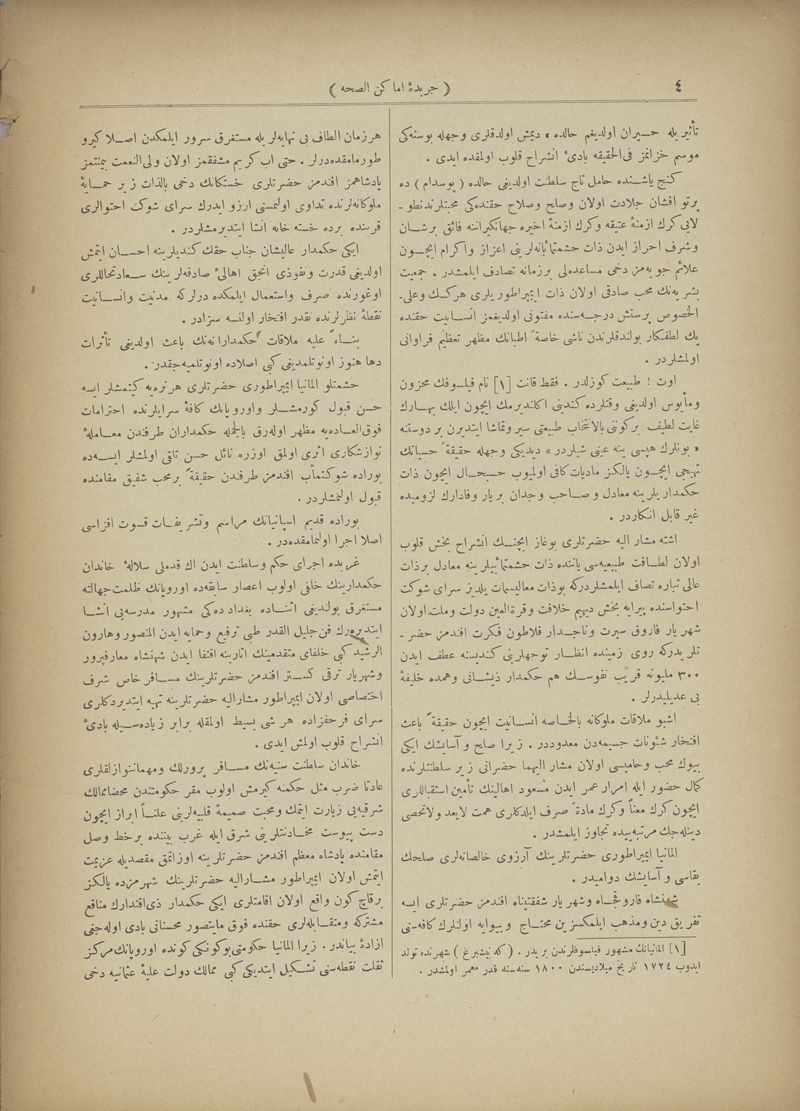 ٤
( جریدۀ اماكن الصحه )
تأثیریله حـیران اولدیغم حالده » دیمش اولدقلری وجهله بوسته‌كی
موسم خزانمز فی‌الحقیقه بادئ انشراح قلوب اولمقده ایدی .
كنج یاشـنده حامل تاج سلطنت اولدیغی حالده ( پوسدام ) ده
پرتو افشان جلادت اولان وصلح وصلاح حقنده‌كی
لایی كرك ازمنۀ عتیقه وكرك ازمنۀ اخیره جهانكیراننه فائق بر شـان
وشرف احراز ایدن ذات حشمتمآبانه‌لرینی اعزاز واكرام ایچـون
علائم جویه‌مز دخی مساعده‌لی بر زمانه تصادف ایلمشدر . جمعیت
بشریه‌نك محب صادقی اولان ذات ایمپراطوریلری هركسك وعلی‌ـ
الخصوص پرستش درجه‌سنده مفتونی اولدیغمز انسـانیت حقنده
پك لطفكار بولندقلرندن ناشی خاصةً اطبانك مظهر تعظیم فراوانی
اولمشلردر .
اوت ! طبیعت كوزلدر . فقط قانت [١] نام فیلسوفك محزون
ومأیوس اولدیغی وقتلرده كندینی اكلندیرمك ایچون ایلك بهارك
غایت لطیف بركوننی بالانتخاب طبیعتی سیر وتماشا ایتدیرن بر دوستنه
« بونلرك هپسی ینه عینی شیلردر » دیدیكی وجهله حقیقةً حسیاتك
تهییجی ایچـون یالكز مادیات كافی اولمیوب حسبحـال ایچون ذات
حكمداریلرینه معادل و صـاحب وجدان بر یار وفادارك لزومیده
غیر قابل انكاردر .
اشته مشار الیه حضرتلری بوغاز ایچنـك انشراح بخش قلوب
اولان لطـافت طبیعیه‌سی یاننده ذات حشمتمآبیلرینه معادل برذات
عالی تباره تصادف ایلمشلردركه بوذات معالیسمات یلدیز سرای شوكت
احتواسنده پیرایه بخش دیهیم خلافت وقرةالعین دولت وملت اولان
شهریار فاروق سیرت وتاجـدار فلاطون فكرت افندمز حضرـ
تلریدركه روی زمینده انظـار توجهلرینی كندیسنه عطف ایدن
٣٠٠ ملیونه قریب نفوسـك هم حكمدار ذیشانی وهمده خلیفۀ
بی عدیلیدرلر .
اشبو ملاقات ملوكانه بالخاصه انسـانیت ایچون حقیقةً باعث
افتخار شئونات جسیمه‌دن معدوددر . زیرا صلح و آسایشك ایكی
بیوك محب وحامیسی اولان مشار الیهما حضراتی زیر سلطنتلرنده
كمال حضور ایله امرار عمر ایدن مسعود اهالینك تأمین استقباللری
ایچون كرك معناً وكرك مادةً صرف ایلدكلری همت لایعد ولاتحصی
دینله‌جك مرتبه‌ییده تجاوز ایلمشدر .
المانیا ایمپراطوری حضرتلرینك آرزوی خالصانه‌لری صلحك
بقاسی و آسایشك دوامیدر .
شهنشاه فاروقجـاه وشهریار شفقتپناه افندمز حضرتلری ایسه
تفریق دین ومذهب ایلمكسزین محتـاج و بیوایه اولنلرك كافه‌سنی
[١] المانیانك مشهور فیلسوفلرندن بریدر . ( كه‌نیشبرغ ) شهرنده تولد
ایدوب ١٧٢٤ تاریخ میلادیسندن ١٨٠٠ سنه‌سنه قدر معمر اولمشدر .
هر زمان الطاف بی نهایه‌لریله مستغرق سرور ایلمكدن اصـلا كیرو
طورمامقده‌درلر . حتی اب كریم مشفقمز اولان ولی‌النعمت بیمنتمز
پادشاهمز افندمز حضرتلری خستكانك دخی بالذات زیر حمـایۀ
ملوكانه‌لرنده تداوی اولنمسنی ارزو ایدرك سرای شوكت احتوالری
قربنده برده خسته خانه انشا ایتدیرمشلردر .
ایكی حكمدار عالیشان جناب حقك كندیلرینه احسـان ایتمش
اولدیغی قدرت ونفوذی انجق اهالئ صادقه‌لرینك سـعادتحاللری
اوغورنده صرف واستعمال ایلمكده درلركه مدنیت وانسـانیت
نقطۀ نظرلرنده نقدر افتخار اولنسه سزادر .
بنـاءً علیه ملاقات حكمدارانه‌نك باعث اولدیغی تأثرات
دها هنوز اونوتلمدیغی كبی اصلاده اونوتلمیه‌جقدر .
حشمتلو المانیا ایمپراطوری حضرتلری هر نره‌یه كیتمشلر ایسه
حسن قبول كورمشـلر واوروپانك كافۀ سرایلرنده احترامات
فوق‌العاده‌یه مظهر اوله‌رق بالجمله حكمداران طرفندن معـاملۀ
نوازشكاری اثری اولمق اوزره نائل حسن تلقی اولمشلر ایسـه‌ده
بوراده شوكتمآب افندمز طرفندن حقیقةً بر محب شفیق مقامنده
قبول اولنمشلردر .
بوراده قدیم اسپانیانك مراسم وتشریفـات قسوت افزاسی
اصلا اجرا اولنمامقده‌در .
غربده اجرای حكم وسلطنت ایدن اك قدملی سلالۀ خاندان
حكمدارینك خلفی اولوب اعصار سابقه‌ده اوروپانك ظلمت جهالته
مستغرق بولندیغی اثنـاده بغداده‌كی مشهور مدرسه‌یی انشـا
ایتدیره‌رك فن جلیل القدر طبی ترفیع وحمایه ایدن المنصور وهارون
الرشید كبی خلفای متقدمینك اثارینه اقتفا ایدن شهنشاه معارفپرور
وشهریار ترقی كستر افندمز حضرتلرینك مسـافر خاص شرف
اختصاصی اولان ایمپراطور مشارالیه حضرتلرینه تهیه ایتدیردكلری
سرای فرحفزاده هر شی بسیط اولمقله برابر زیاده‌سـیله بادئ
انشراح قلوب اولمش ایدی .
خاندان سلطنت سنیه‌نك مسـافر پرورلك ومهمانوازلقلری
عادتا ضرب مثل حكمنه كیرمش اولوب مقر حكومتندن محضا ممالك
شرقیه‌یی زیارت ایتمك ومحبت صمیمۀ قلبیه‌لرینی علنـاً ابراز ایچون
دست پیوست مخـادنتلرینی شرق ایله غرب بیننده برخط وصل
مقامنده پادشاه معظم افندمز حضرتلرینه اوزاتمق مقصدیله عزیمت
ایتمش اولان ایمپراطور مشـارالیه حضرتلرینك شهرمزده یالكز
برقاچ كون واقع اولان اقامتلری ایكی حكمدار ذی‌اقتدارك منافع
مشتركه ومتقـابله‌لری حقنده فوق مایتصور محسناتی بادی اوله‌جغی
ازادۀ بیاندر . زیرا المانیا حكومتی بوكونكی كونده اوروپانك مركز
ثقلت نقطه‌سنی تشـكیل ایتدیكی كبی ممالك دولت علیۀ عثمانیه دخی